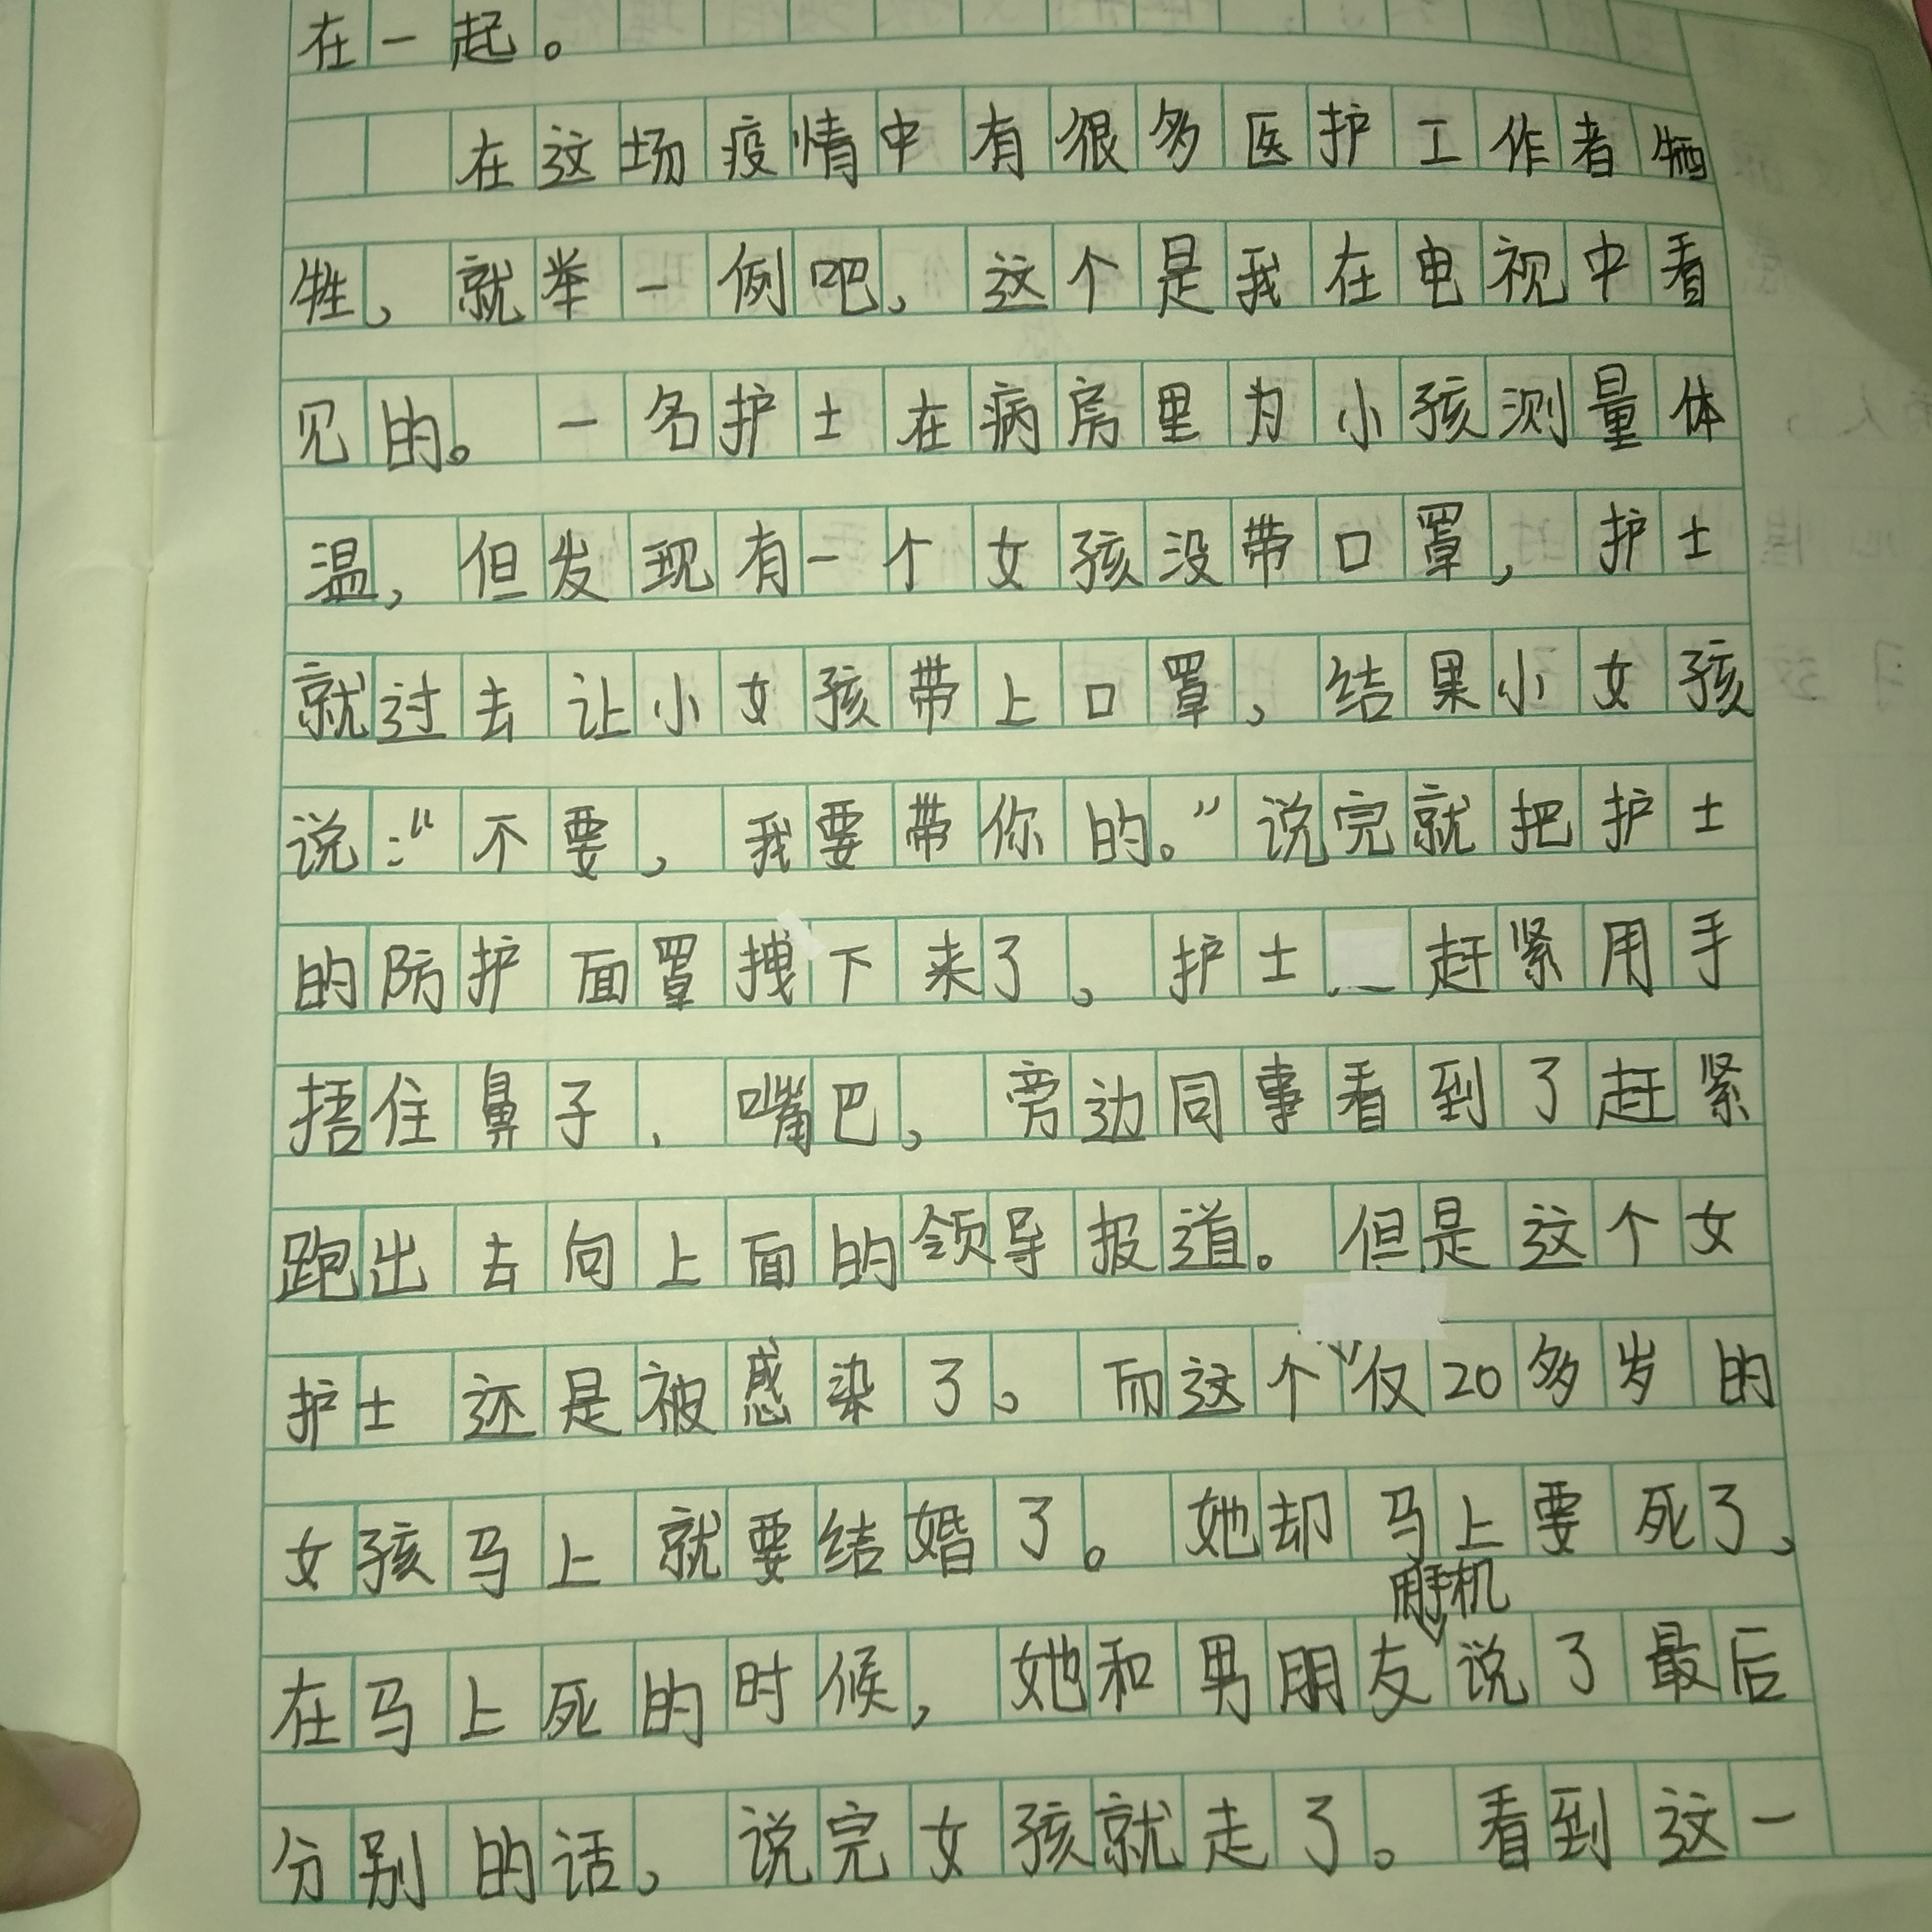 在一起。
在这场疫情中有很多医护工作者牺
牲，就举一例吧，这个是我在电视中看
见的。一名护士在病房里为小孩测量体
温，但发现有一个女孩没带口罩，护士
就过去让小女孩带上口罩，结果小女孩
说：“不要，我要带你的。”说完就把护士
的防护面罩拽下来了，护士赶紧用手
捂住鼻子、嘴巴，旁边同事看到了赶紧
跑出去向上面的领导报道。但是这个女
护士还是被感染了，而这个仅20多岁的
女孩马上就要结婚了。她却马上要死了，
用手机
在马上死的时候，她和男朋友说了最后
分别的话，说完女孩就走了。看到这一